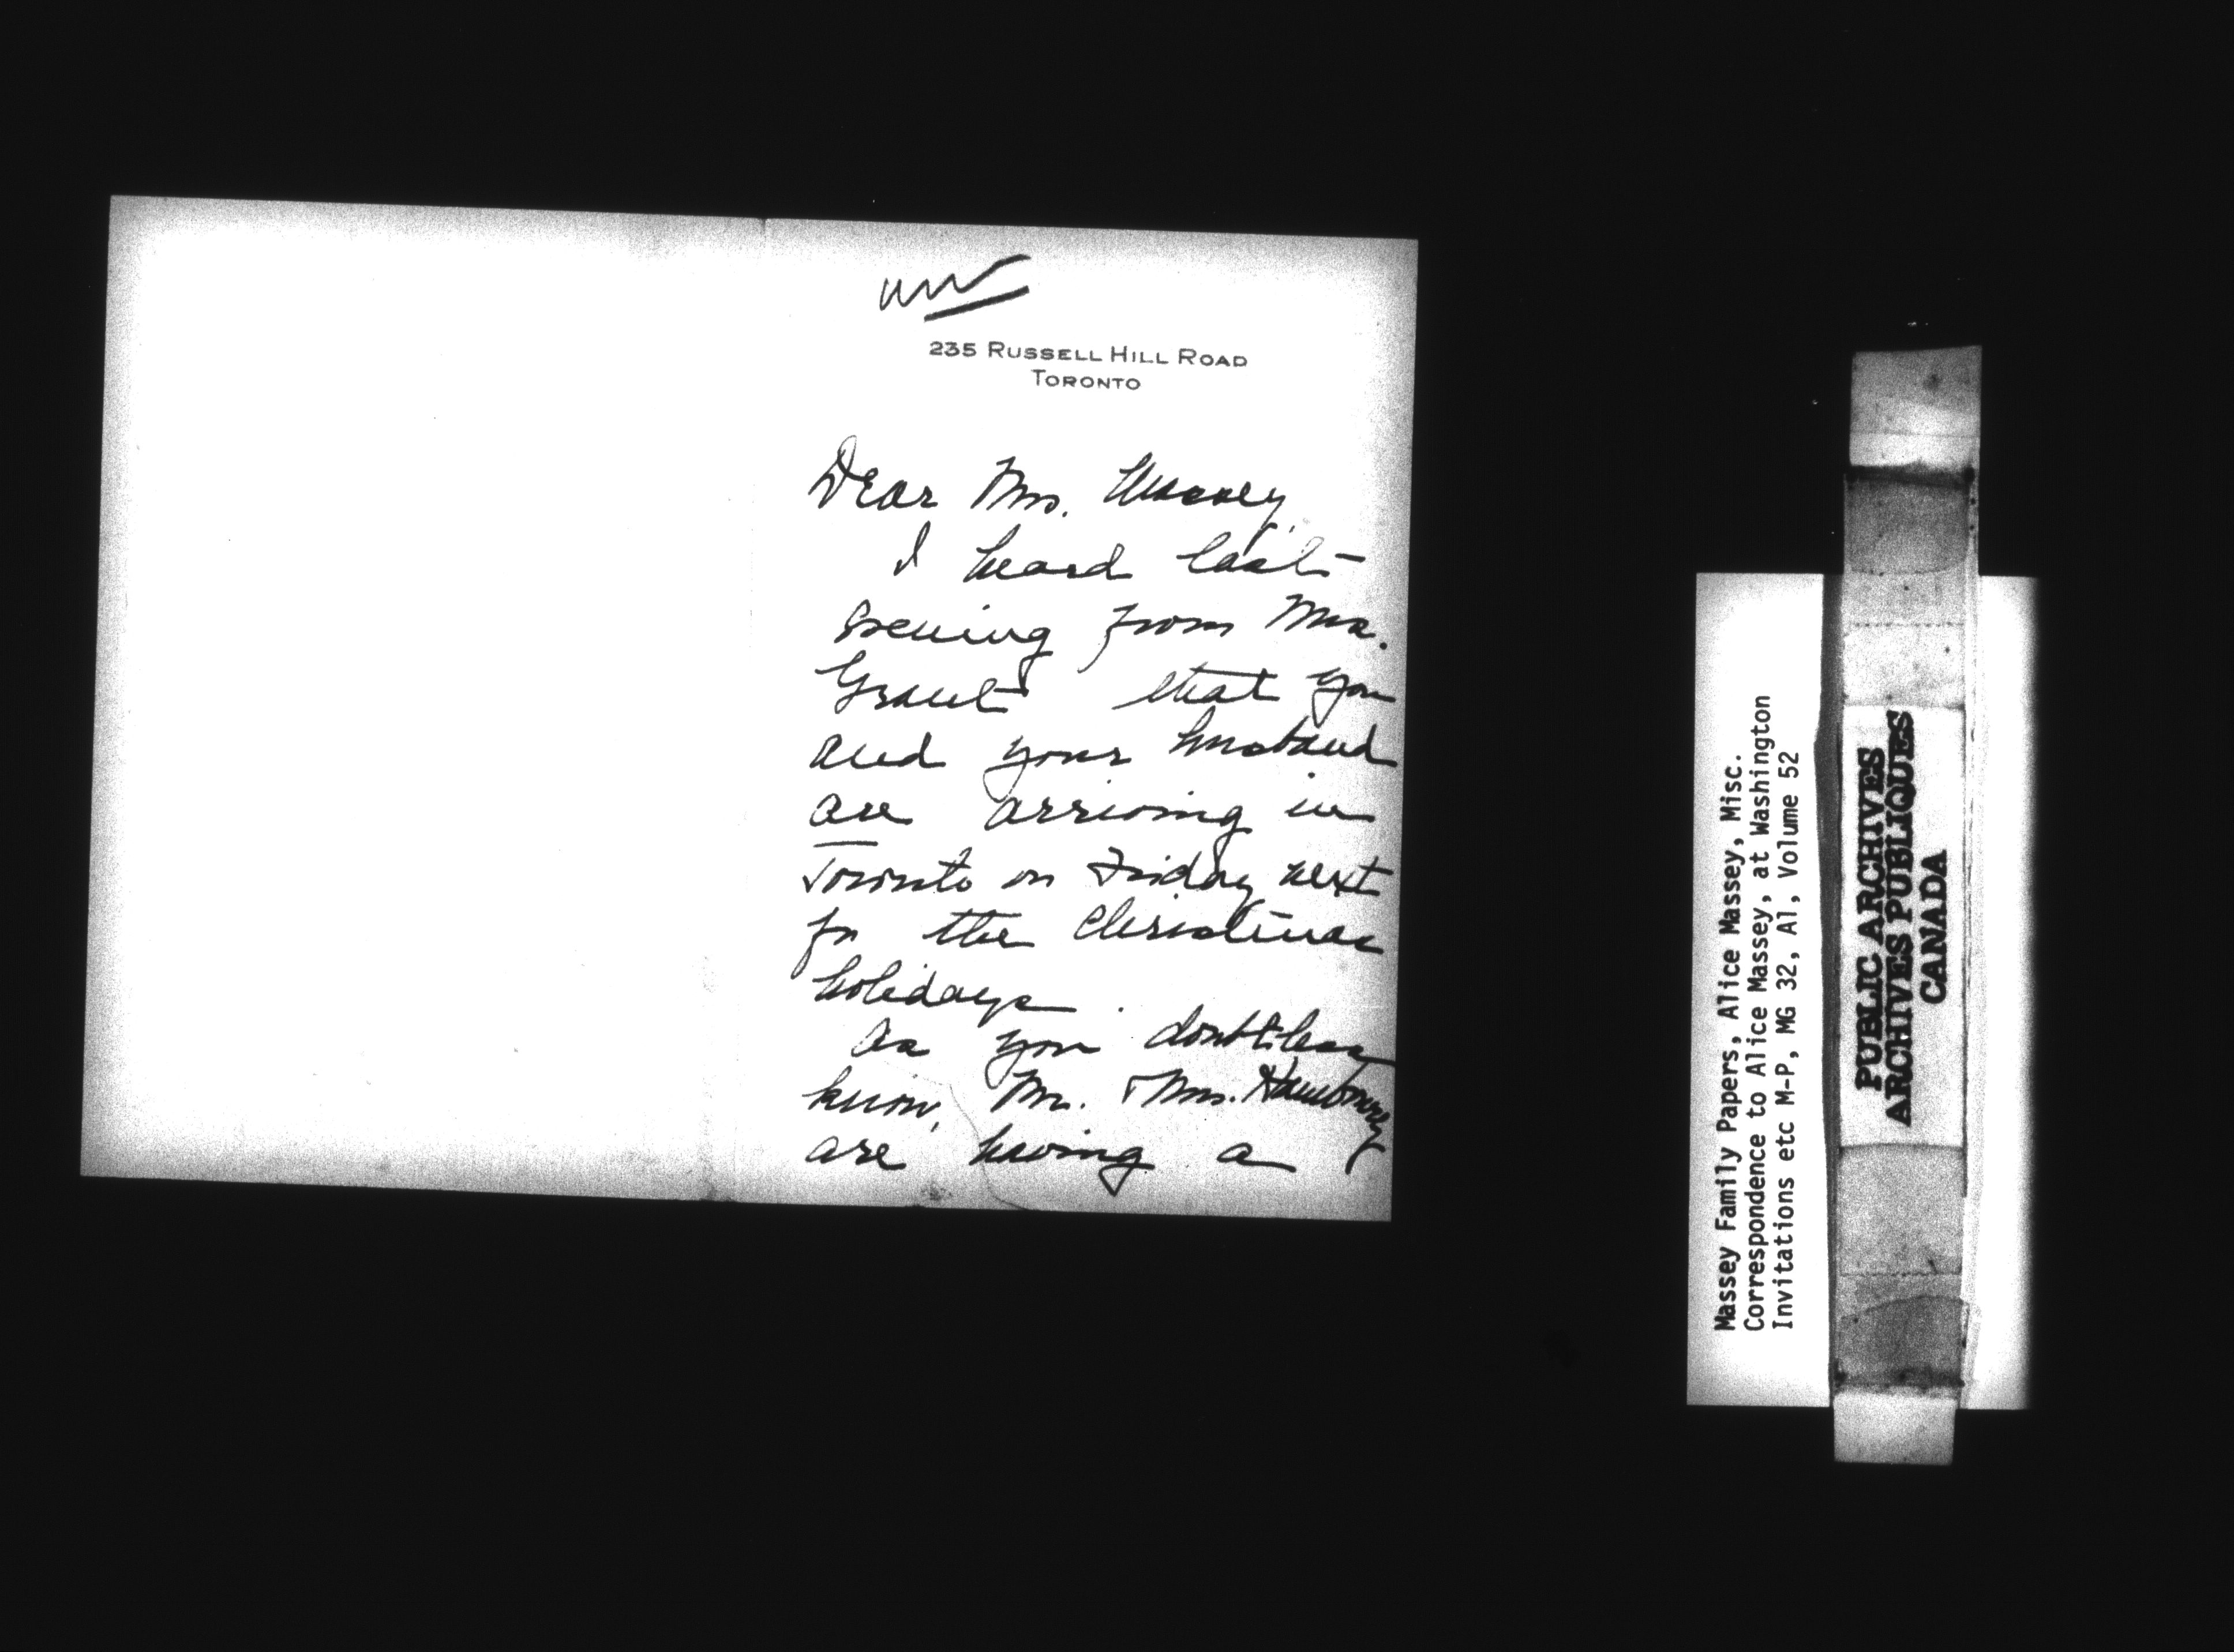 235 RUSSELL HILL ROAD
TORONTO
Dear Mrs. Massey,
I heard last
evening from Mrs.
Grant that you
and your husband
are arriving in
Toronto on Friday next
for the Christmas
holidays.
As you doubtless
know, Mr. & Mrs. Hambourg
are having a
Massey Family Papers, Alice Massey, Misc.
Correspondence to Alice Massey, at Washington
Invitations etc M-P, MG 32, A1, Volume 52
PUBLIC ARCHIVES
ARCHIVES PUBLIQUES
CANADA